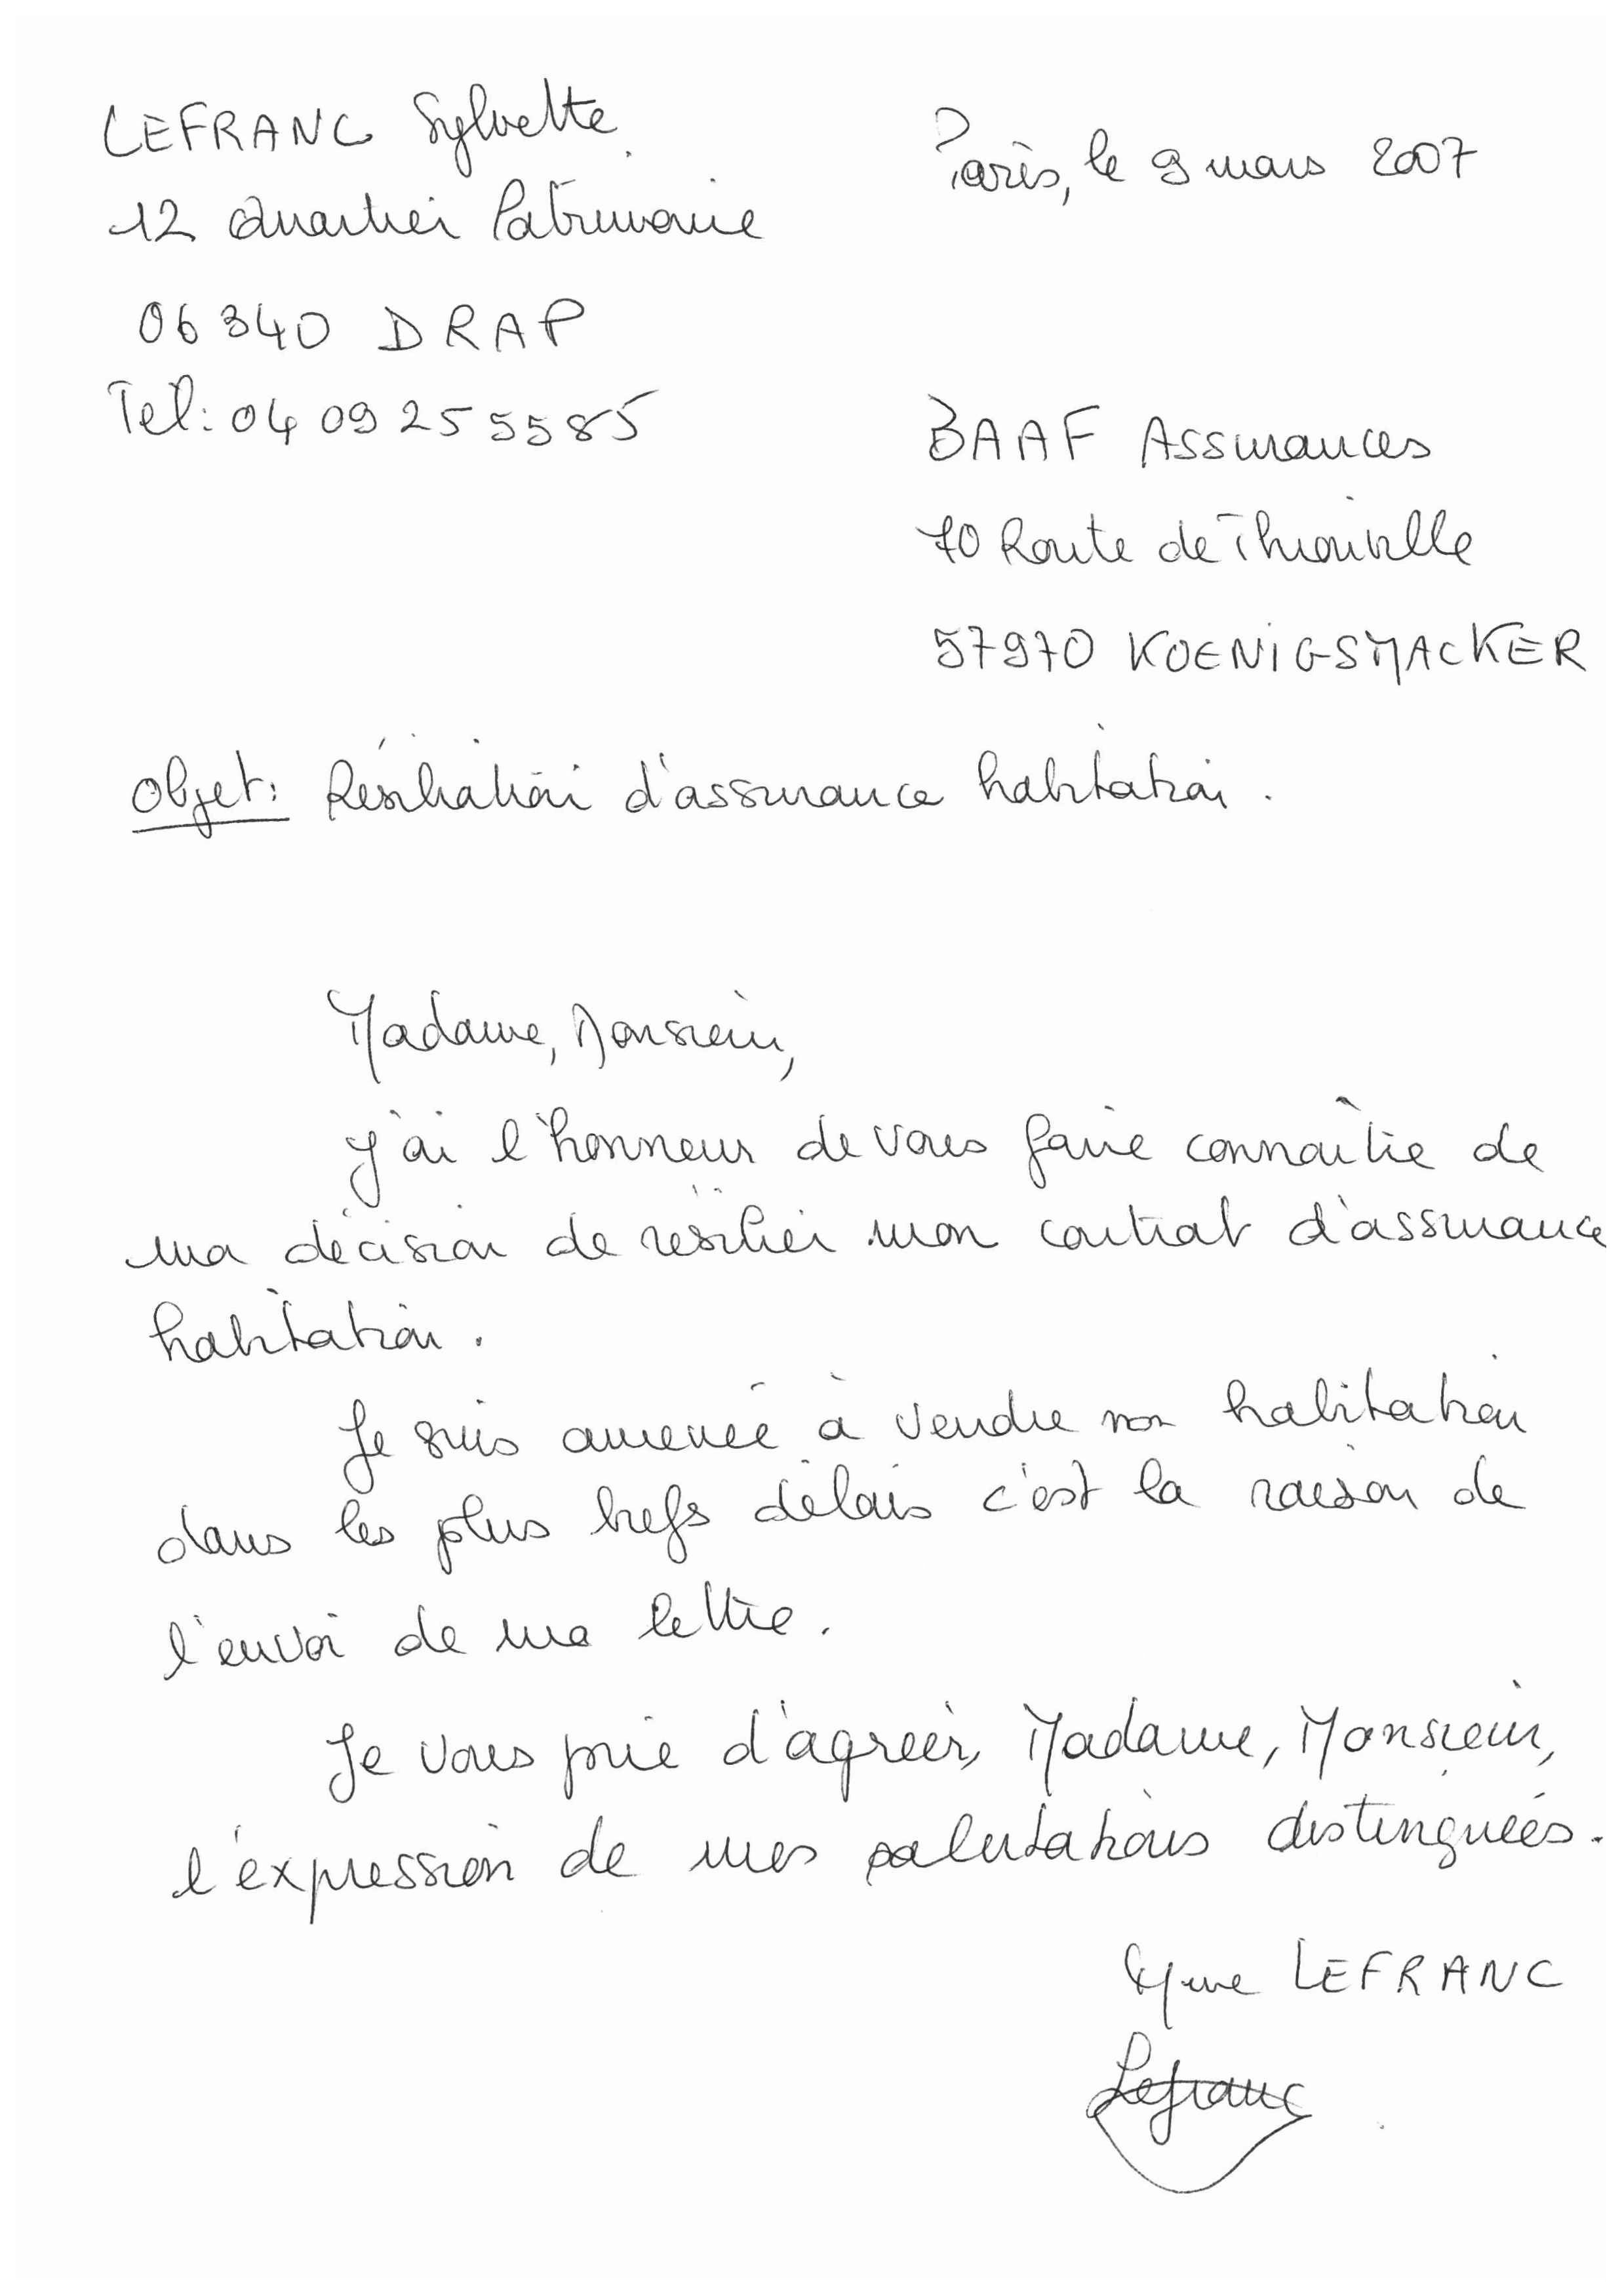 LEFRANC Sylvette
Paris, le 9 mars 2007
12 Quartier Patrimoine
06340 DRAP
Tel: 04 09 25 55 85
BAAF Assurances
70 Route de Thionville
57970 KOENIGSMACKER
Objet: Résiliation d'assurance habitation.
Madame, Monsieur,
J'ai l'honneur de vous faire connaître de
ma décision de résilier mon contrat d'assurance
habitation.
Je suis amenée à vendre mon habitation
dans les plus brefs délais c'est la raison de
l'envoi de ma lettre.
Je vous prie d'agréer, Madame, Monsieur,
l'expression de mes salutations distinguées.
Mme LEFRANC
Lefranc